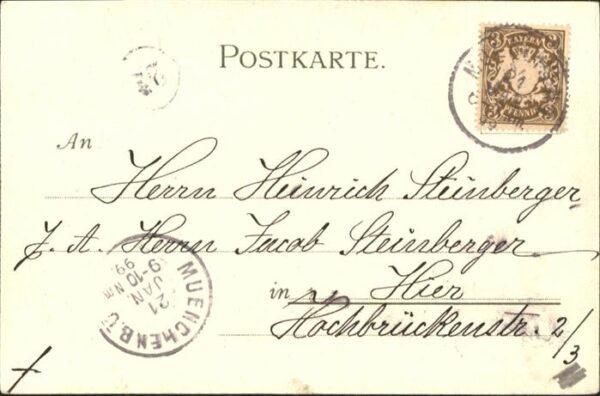 POSTKARTE.
BAYERN
3 3
PFENNIG
An
Herrn Heinrich Steinberger
J. A. Herrn Jacob Steinberger
in Hier
Hochbrückenstr. 2/3
MUENCHEN B.
21
JAN.
9-10 Nm
99.